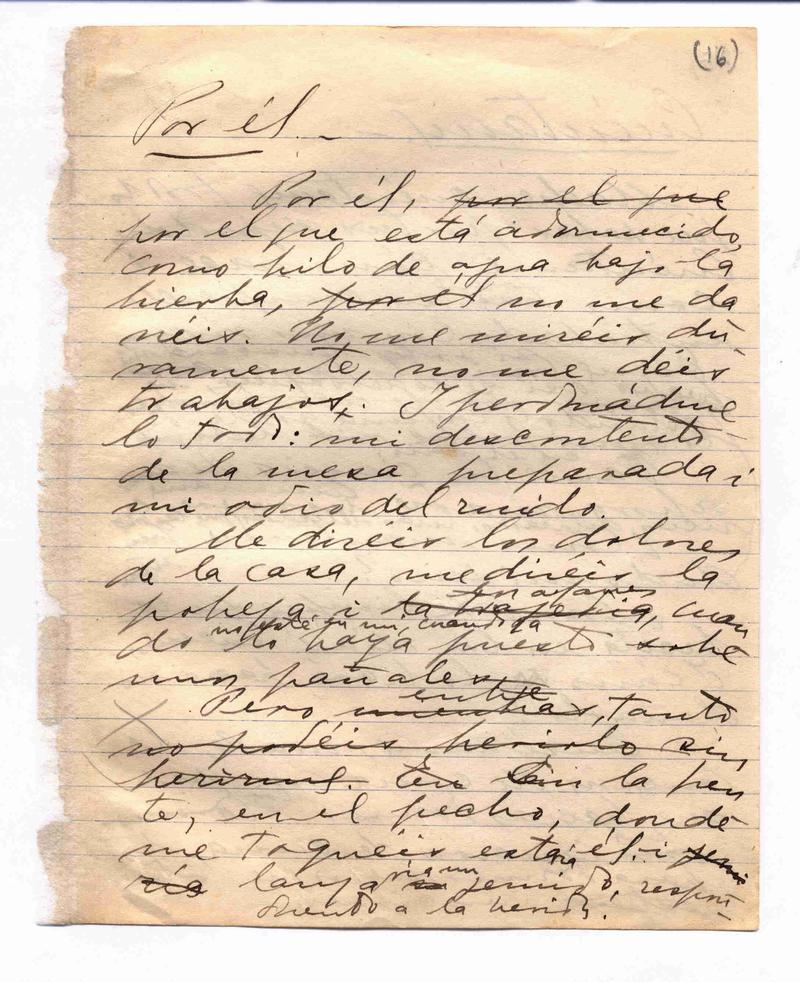 (16)
Por él.-
Por él, por el que
por el que está adormecido,
como hilo de agua bajo la
hierba, por él no me da
néis. No me miréis du-
ramente, no me déis
trabajos. I perdonádme
lo todo: mi descontento
de la mesa preparada i
mi odio del ruido.
Me diréis los dolores
de la casa, me diréis la
pobreza i la tragedia, cuan
no esté en mí, cuando ya
do lo haya puesto sobre
unos pañales.
entre
Pero, mientras, tanto
no podéis herirlo sin
herirme. En la fren
te, en el pecho, donde
me toquéis estaría él i
lanzaría un gemido, respon-
diendo a la herida.